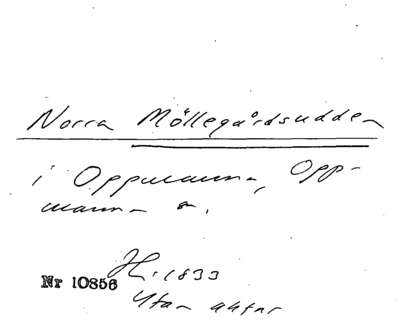 Norra Möllegårdsudden
i Oppmanna, Opp-
manna s.
Nr 10856
H. 1833
Utan aktnr